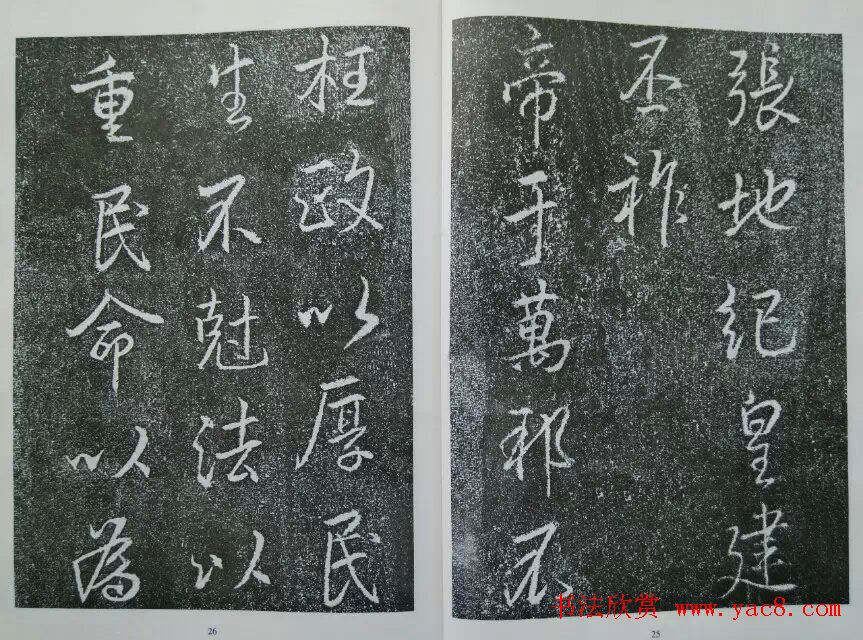 張地紀皇建
丕祚
帝于萬邦不
枉政以厚民
生不尅法以
重民命以為
25
26
书法欣赏 www.yac8.com